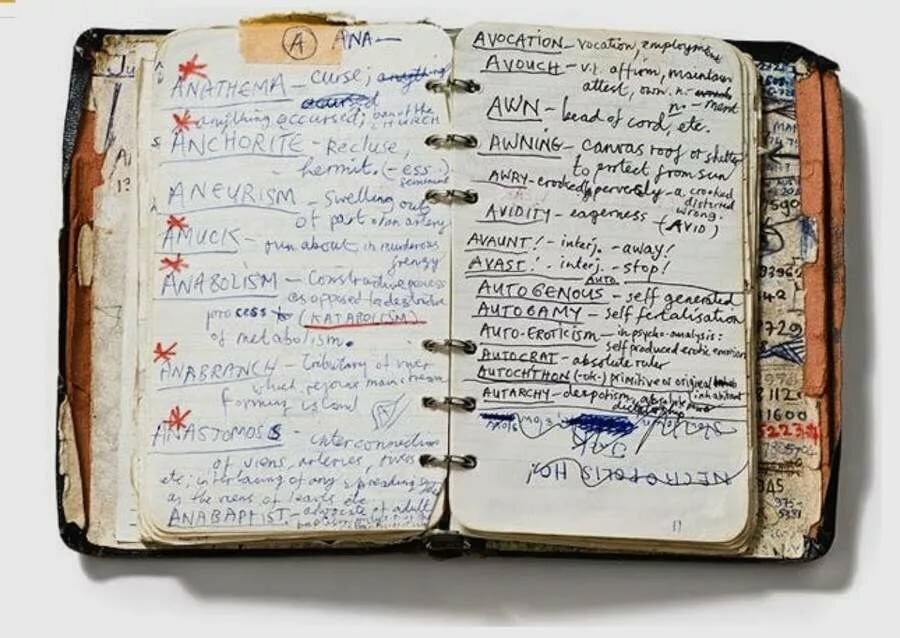 A ANA—
ANATHEMA – curse; anything
accursed
anything accursed; ban of the CHURCH
ANCHORITE – Recluse,
hermit. (-ess.) feminine
ANEURISM – Swelling out
of part of an artery
AMUCK – run about in murderous
frenzy
ANABOLISM – Constructive process
as opposed to destructive
process (KATABOLISM)
of metabolism.
ANABRANCH – tributary of river
which rejoins main stream
forming island
ANASTOMOSIS – interconnection
of viens, arteries, rivers
etc; interlacing of any spreading
as the viens of leaves etc
ANABAPTIST – advocate of adult
AVOCATION – vocation, employment
AVOUCH – v.t. affirm, maintain
attest, own. n.
n. – ment
AWN – beard of cord, etc.
AWNING – canvas roof or shelter
to protect from sun
AWRY – crookedly, perversely – a. crooked
distorted
wrong.
AVIDITY – eagerness (AVID)
AVAUNT! – interj. – away!
AVAST! – interj. – stop!
AUTO
AUTOGENOUS – self generated
AUTOGAMY – self fertalisation
AUTO-EROTICISM – in psycho-analysis:
self produced erotic emotion
AUTOCRAT – absolute ruler
AUTOCHTHON (-ok-) primitive or original
inhabitant
AUTARCHY – despotism, absolute
dictatorship
NECROPOLIS HO!
11